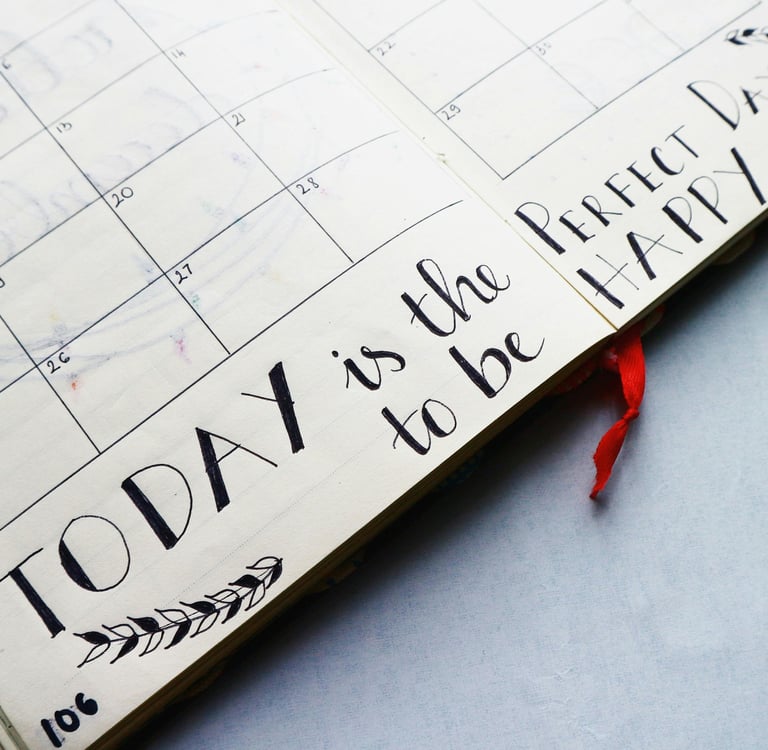 6
13 14
20 21
26 27 28
22
29 30
TODAY is the PERFECT DAY
to be HAPPY
106